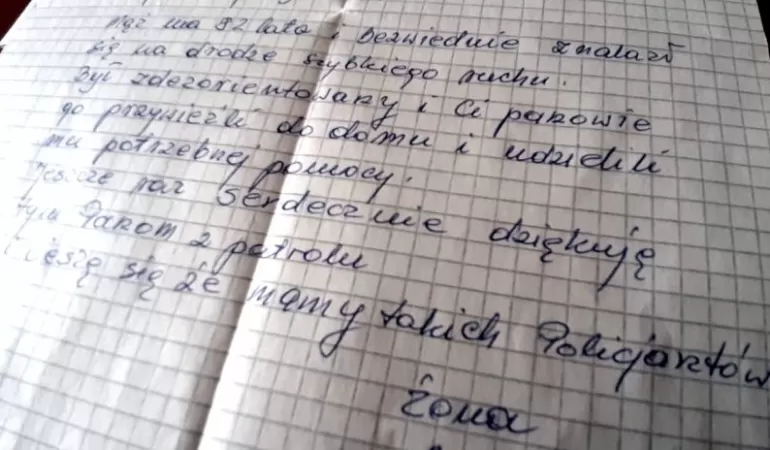 Mąż ma 82 lata i bezwiednie znalazł
się na drodze szybkiego ruchu.
Był zdezorientowany i Ci panowie
go przywieźli do domu i udzielili
mu potrzebnej pomocy.
Jeszcze raz serdecznie dziękuję
tym Panom z patrolu
Cieszę się że mamy takich Policjantów
żona